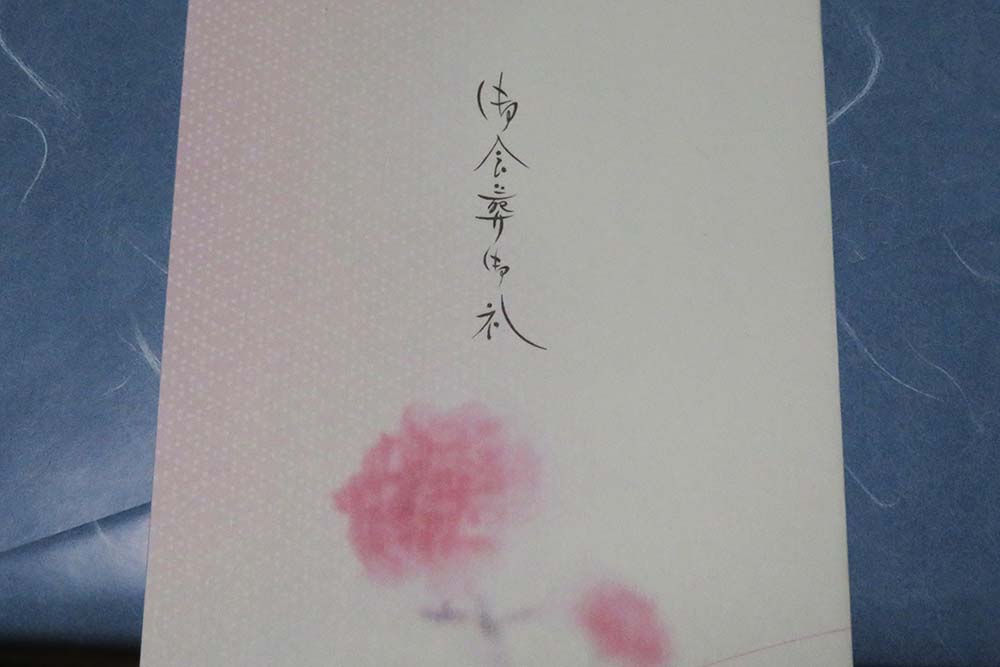 御会葬御礼